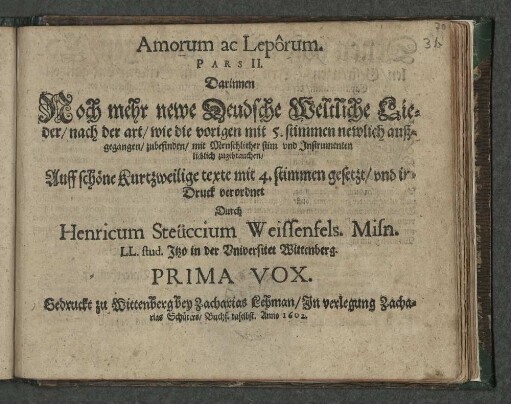 70
36
Amorum ac Lepôrum.
PARS II.
Darinnen
Noch mehr newe Deudsche Weltliche Lie-
der/ nach der art/ wie die vorigen mit 5. stimmen newlich auß-
gegangen/ zubefinden/ mit Menschlicher stim vnd Instrumenten
lieblich zugebrauchen/
Auff schöne Kurtzweilige texte mit 4. stimmen gesetzt/ vnd in
Druck verordnet
Durch
Henricum Steüccium Weissenfels. Misn.
LL. stud. Itzo in der Vniversitet Wittenberg.
PRIMA VOX.
Gedruckt zu Wittenberg bey Zacharias Lehman/ In verlegung Zacha-
rias Schürers/ Buchf. daselbst. Anno 1602.